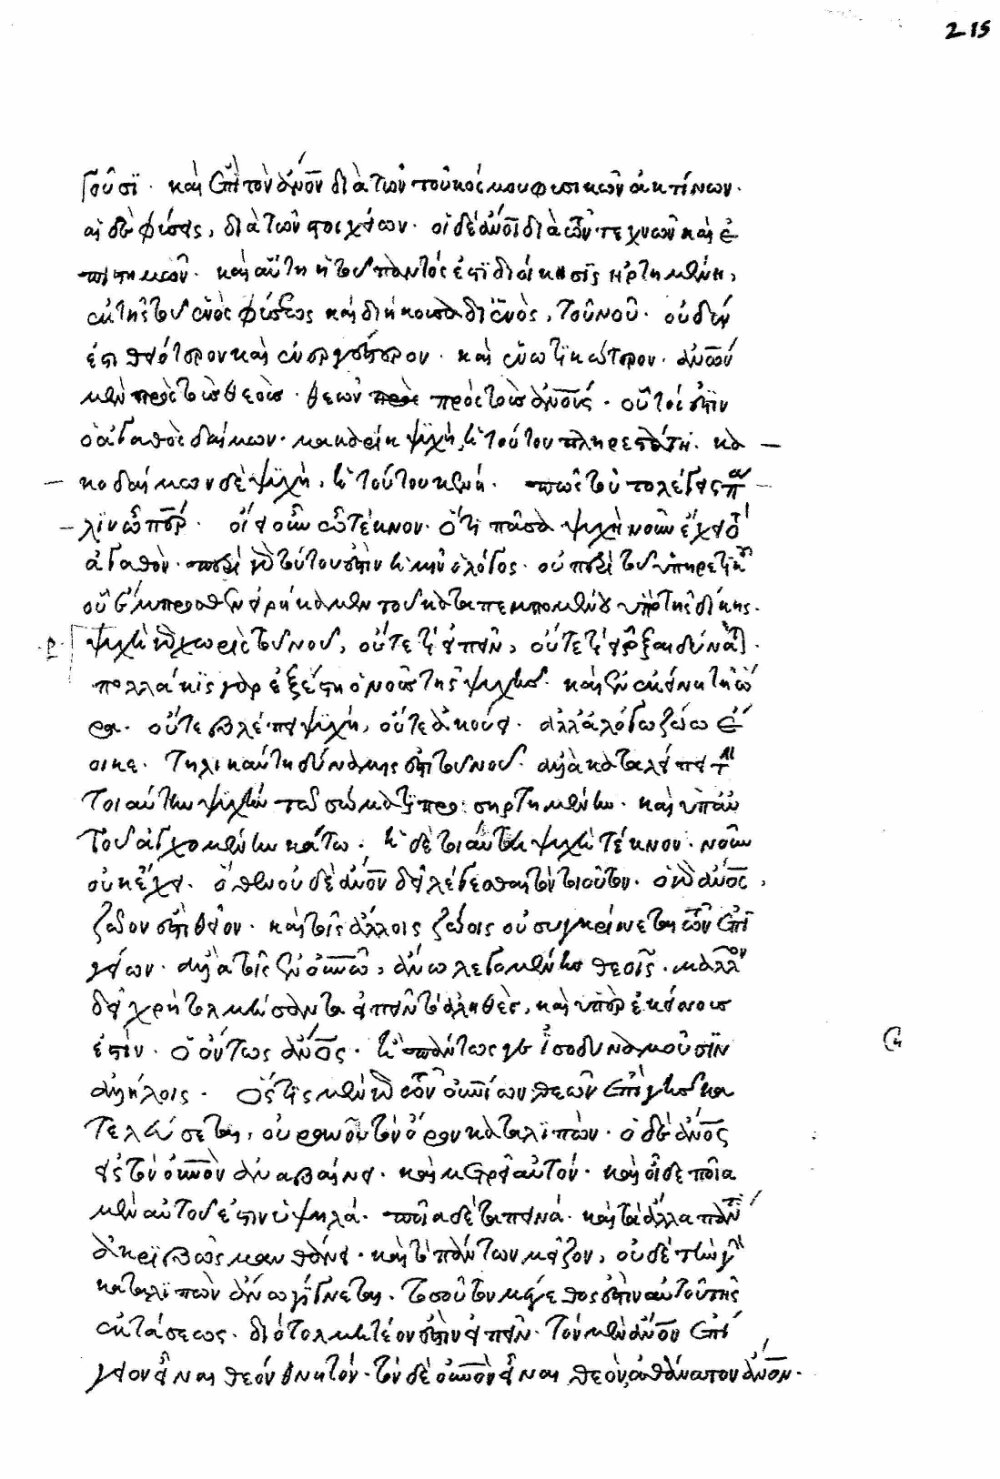 γοῦσϊ. καὶ ἐπὶ τὸν ἄνον διὰ τῶν τοῦ κόσμου φυσικῶν ἀκτίνων.
αἱ δὲ φύσεις, διὰ τῶν στοιχείων. οἱ δὲ ἄνοι διὰ τῶν τεχνῶν καὶ ἐ
πιστημῶν. καὶ αὕτη ἡ τοῦ παντός ἐστϊ διοίκησϊς ἠρτημένη,
ἐκ τῆς τοῦ ἑνὸς φύσεως καὶ διήκουσα δι ἑνὸς, τοῦ νοῦ. οὐδέν
ἐστι θειότερον καὶ ἐνεργέστερον. καὶ ἑνωτϊκώτερον. ἀνων
μὲν πρὸς τοὺς θεούς. θεῶν πρὸς τοὺς ἄνους. οὗτός ἐστϊν
ὁ ἀγαθὸς δαίμων. μακαρία ψϋχὴ, ἡ τούτου πληρεστάτη. κα
κοδαίμων δὲ ψϋχὴ, ἡ τούτου κενή. πῶς τοῦτο λέγεις πά
λϊν ὦ περ. οἴει οὖν ὦ τέκνον. ὅτϊ πᾶσα ψυχὴ νοῦν ἔχει τὸ
ἀγαθόν. περὶ γὰρ τούτου ἐστὶν ἡμῖν ὁ λόγος. οὐ περὶ τοῦ ὑπηρετϊκοῦ
οὗ ἔμπροσθεν εἰρήκαμεν τοῦ καταπεμπομένου ὑπὸ τῆς δίκης.
ψυχὴ γὰρ χωρὶς τοῦ νοῦ, οὔτε τϊ εἰπεῖν, οὔτε τϊ ἔρξαι δύναται.
πολλάκϊς γὰρ ἐξέστη ὁ νοῦς τῆς ψυχῆς. καὶ ἐν ἐκείνη τῆ ὥ
ρα. οὔτε βλέπει ψϋχὴ, οὔτε ἀκούει. ἀλλ ἀλόγω ζώω ἔ
οικε. τηλικαύτη δύναμις ἐστὶ τοῦ νοῦ. ἀλλὰ καταλείπει τὴν
τοιαύτην ψυχὴν τῶ σώματϊ προσηρτημένην. καὶ ὑπ αὐ
τοῦ ἀγχομένην κάτω. ἡ δὲ τοιαύτη ψυχὴ τέκνον. νοῦν
οὐκ ἔχει. ὅθεν οὐδὲ ἄνον δεῖ λέγεσθαι τὸν τοιοῦτον. ὁ γὰρ ἄνος,
ζῶον ἐστϊ θεῖον. καὶ τοῖς ἄλλοις ζώοις οὐ συγκρίνεται τῶν ἐπϊ
γείων. ἀλλὰ τοῖς ἐν οὐνῶ, ἄνω λεγομένοις θεοῖς. μᾶλλον
δεῖ χρὴ τολμήσαντα εἰπεῖν τὸ ἀληθὲς, καὶ ὑπὲρ ἐκείνους
ἐστὶν. ὁ ὄντως ἄνος. ἢ πάντως γε ἰσοδυναμοῦσϊν
ἀλλήλοις. ὅστϊς μὲν γὰρ τῶν οὐνίων θεῶν ἐπὶ γῆς κα
τελεύσεται, οὐρανοῦ τὸν ὅρον καταλϊπών. ὁ δὲ ἄνος
εἰς τὸν οὐνὸν ἀναβαίνει. καὶ μετρεῖ αὐτόν. καὶ οἶδε ποῖα
μὲν αὐτοῦ ἐστιν ὑψηλά. ποῖα δέ ταπεινά. καὶ τὰ ἄλλα πάντα
ἀκρϊβῶς μανθάνει. καὶ τὸ πάντων μεῖζον, οὐδὲ τὴν γῆν
καταλϊπὼν ἄνω γίγνεται. τοσοῦτον μέγεθος ἐστϊν αὐτοῦ τῆς
ἐκτάσεως. διὸ τολμητέον ἐστὶν εἰπεῖν. τὸν μὲν ἄνον ἐπί
γειον εἶναι θεόν θνητόν. τὸν δὲ οὐνὸν εἶναι θεὸν, ἀθάνατον ἄνον.